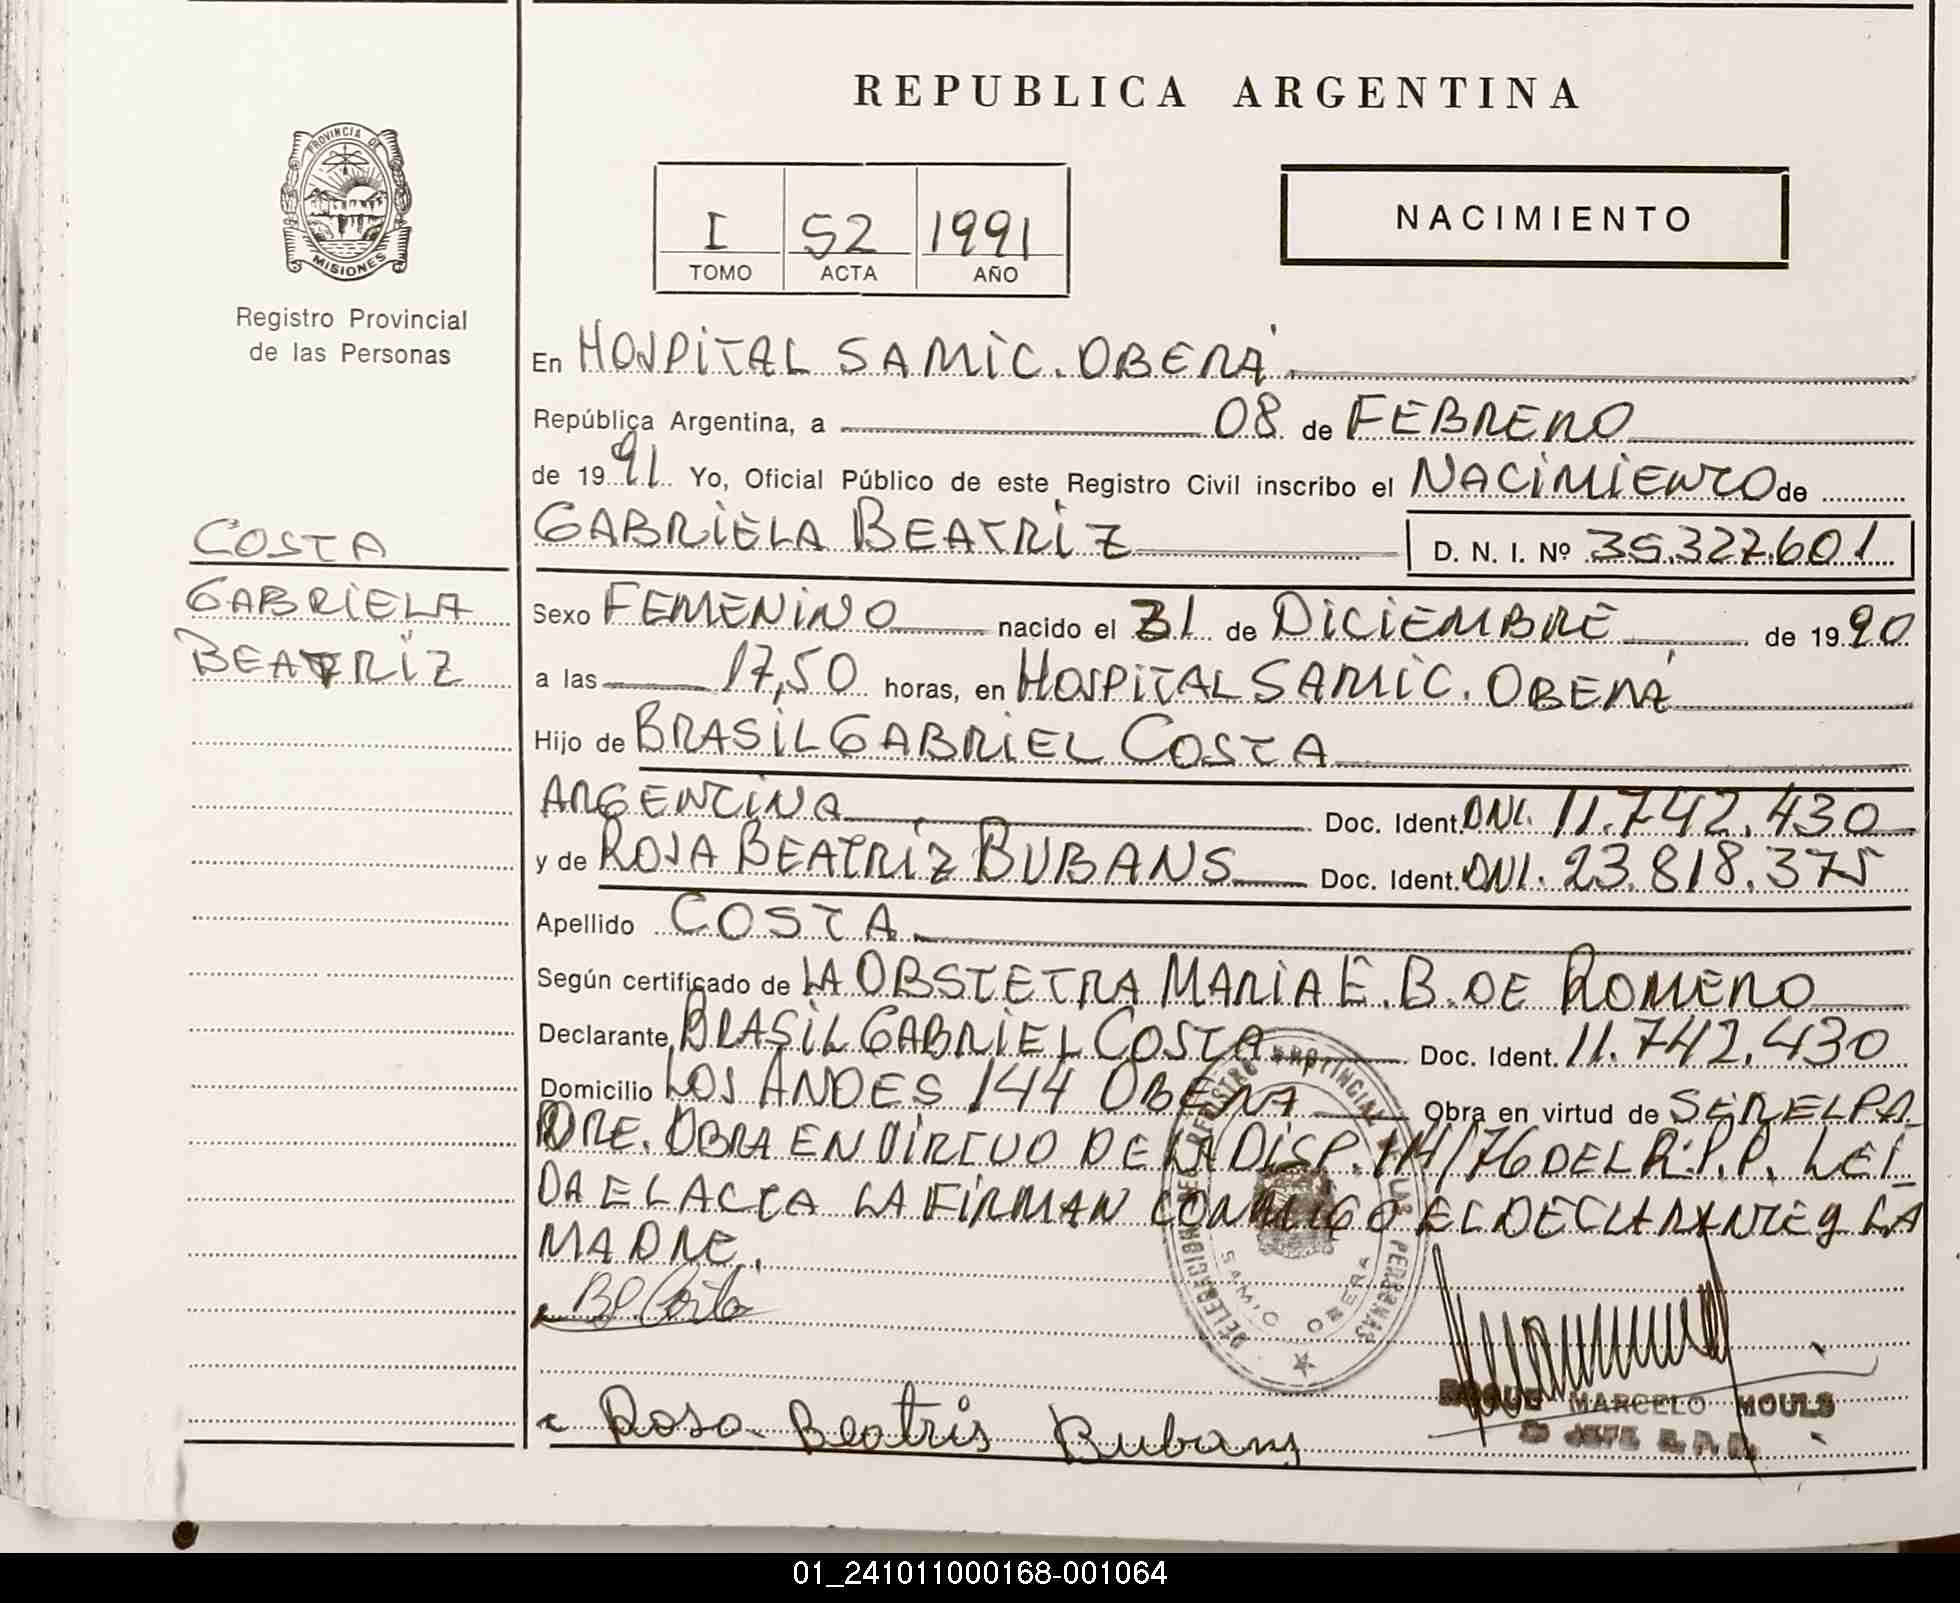 REPUBLICA ARGENTINA
PROVINCIA DE
MISIONES
Registro Provincial
de las Personas
I 52 1991
TOMO ACTA AÑO
NACIMIENTO
En HOSPITAL SAMIC. OBERÁ
República Argentina, a 08 de FEBRERO
de 1991. Yo, Oficial Público de este Registro Civil inscribo el NACIMIENTO de
GABRIELA BEATRIZ D. N. I. Nº 35.327.601
COSTA
GABRIELA
BEATRIZ
Sexo FEMENINO nacido el 31 de DICIEMBRE de 1990
a las 17,50 horas, en HOSPITAL SAMIC. OBERÁ
Hijo de BRASIL GABRIEL COSTA
ARGENTINA Doc. Ident. DNI. 11.742.430
y de ROSA BEATRIZ BUBANS Doc. Ident. DNI. 23.818.375
Apellido COSTA
Según certificado de LA OBSTETRA MARIA E. B. DE ROMERO
Declarante BRASIL GABRIEL COSTA Doc. Ident. 11.742.430
Domicilio LOS ANDES 144 OBERA Obra en virtud de SER EL PA
DRE. OBRA EN VIRTUD DE LA DISP. 114/76 DEL R.P.P. LEI
DA EL ACTA LA FIRMAN CONMIGO EL DECLARANTE y LA
MADRE.
DELEGACION DEL REGISTRO PROVINCIAL DE LAS PERSONAS
SAMIC OBERA
Rosa Beatris Bubans
ROQUE MARCELO MOULS
JEFE R.P.P.
01_241011000168-001064